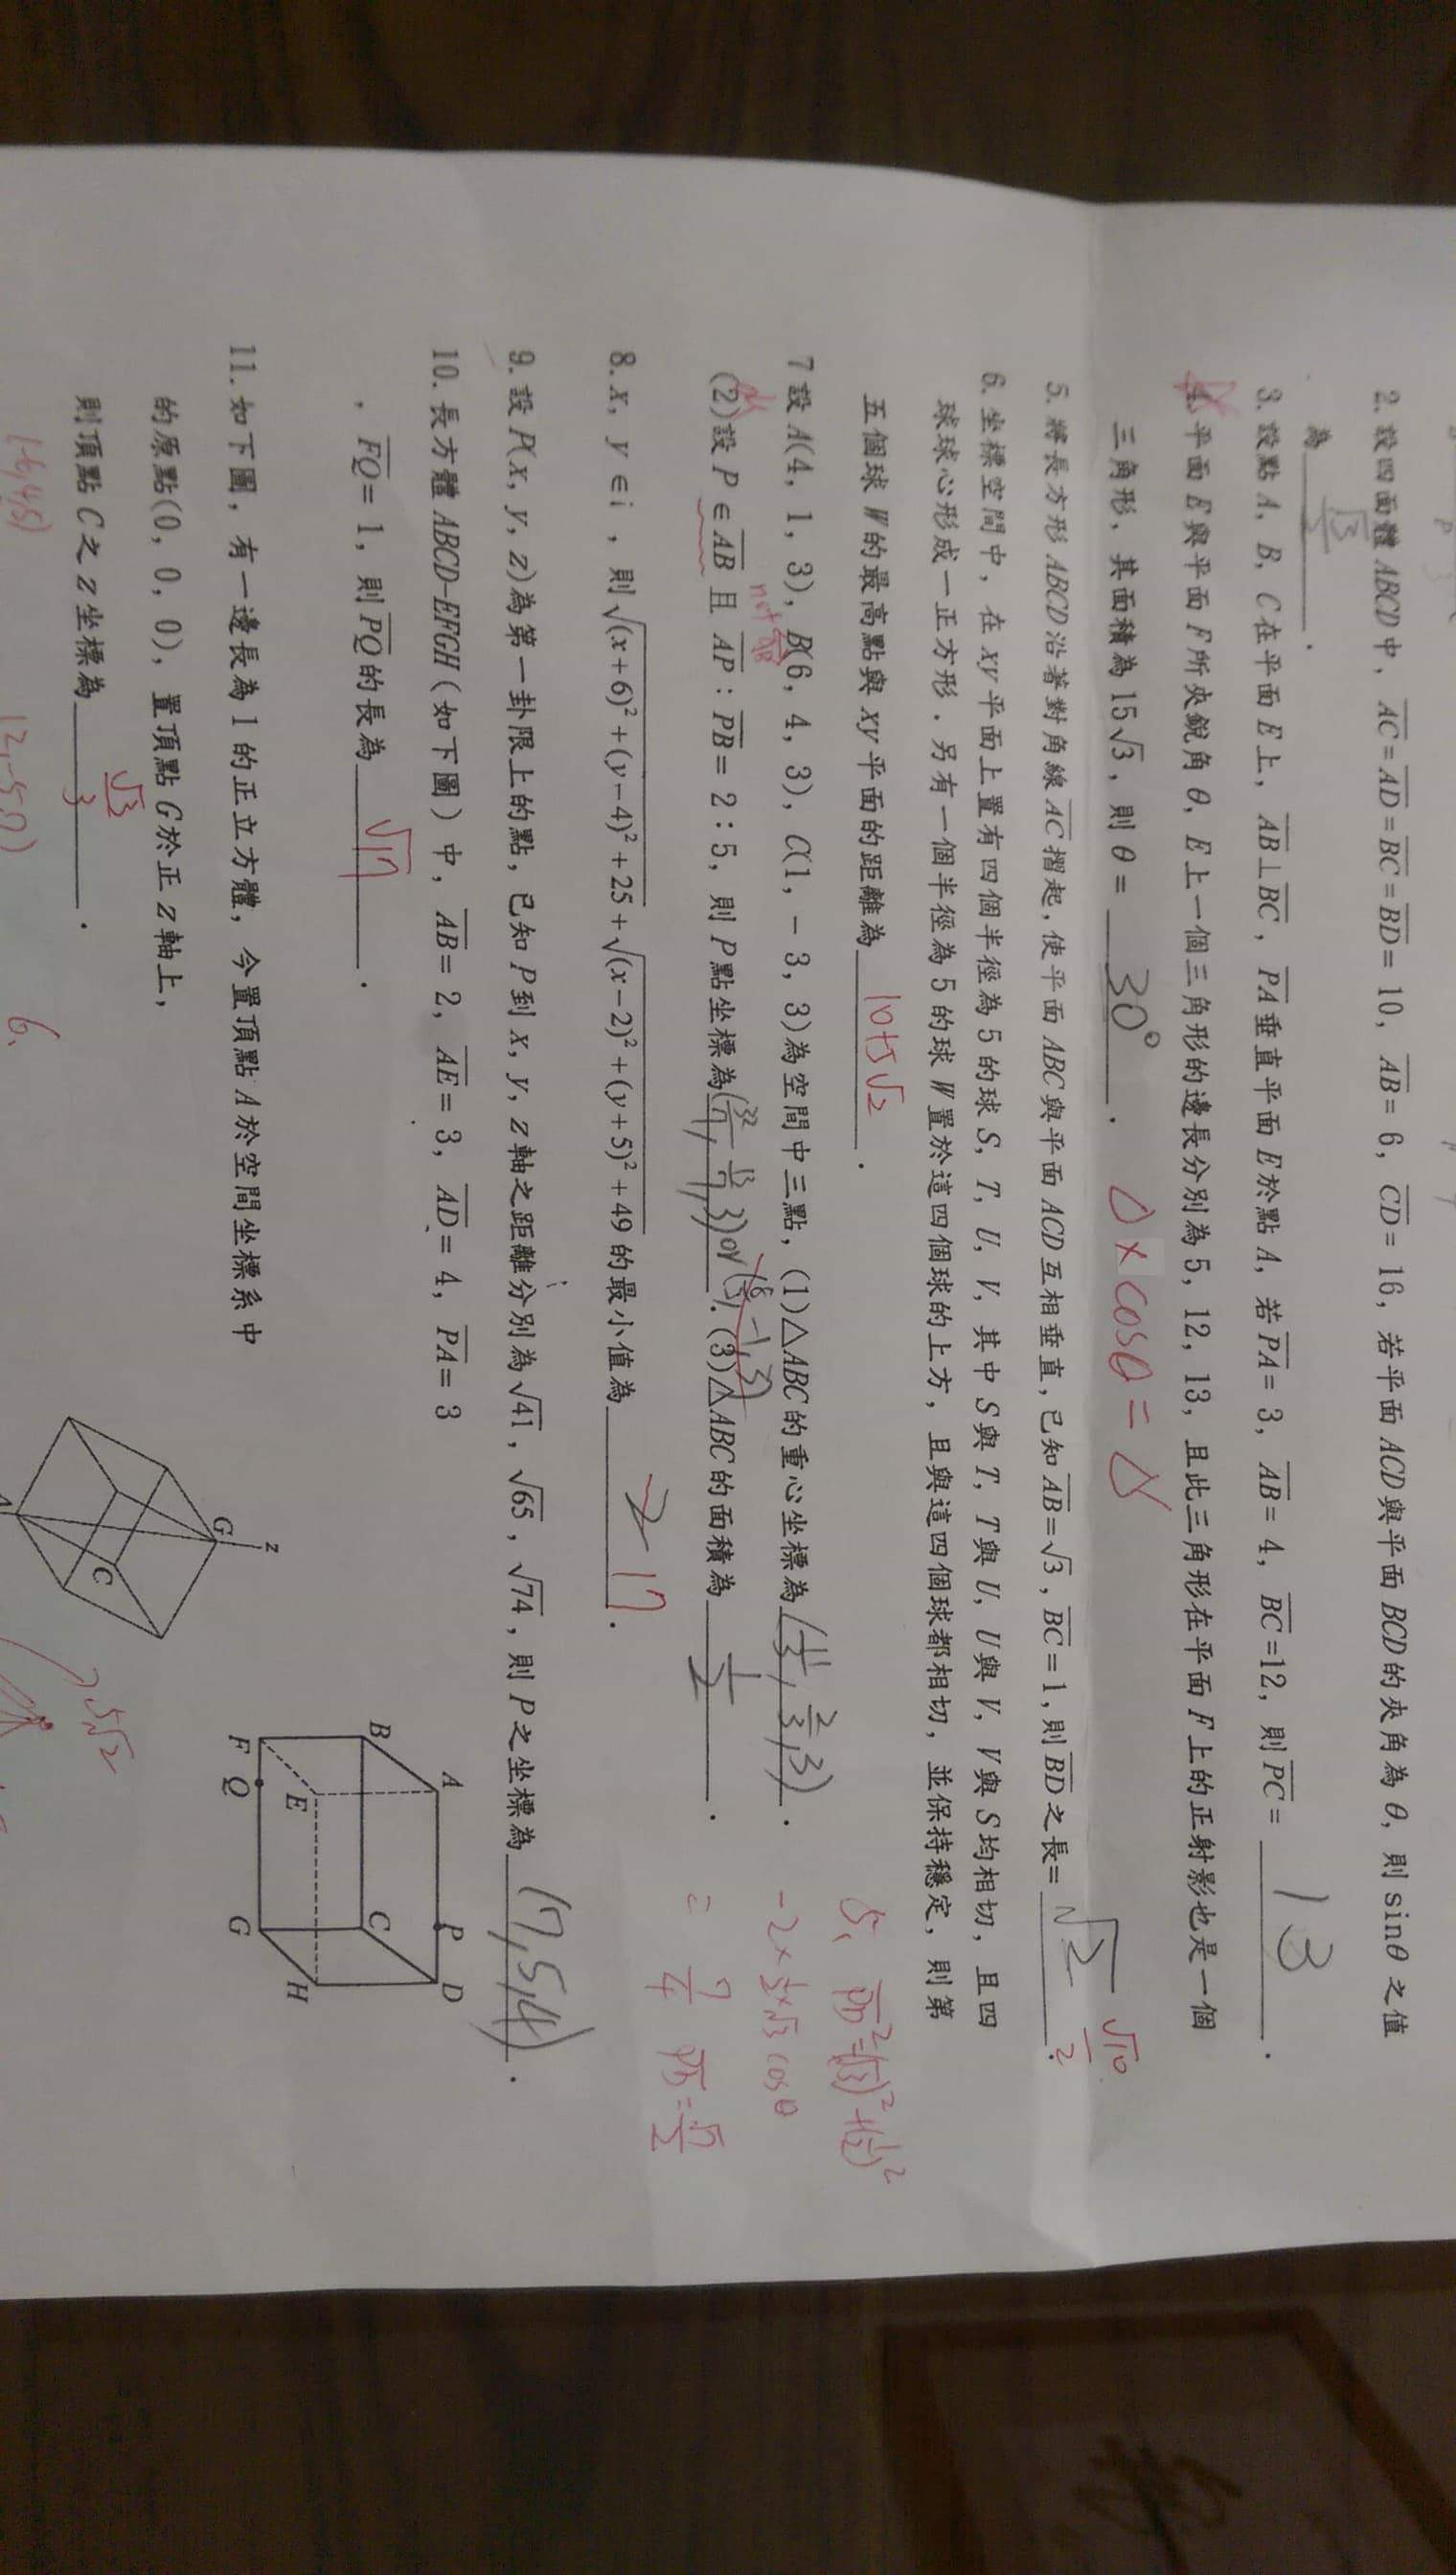 2. 設四面體 ABCD 中，AC=AD=BC=BD=10，AB=6，CD=16，若平面 ACD 與平面 BCD 的夾角為 θ，則 sinθ 之值
為 √3/2 .
3. 設點 A、B、C 在平面 E 上，AB⊥BC，PA 垂直平面 E 於點 A，若 PA=3，AB=4，BC=12，則 PC= 13 .
4. 平面 E 與平面 F 所夾銳角 θ，E 上一個三角形的邊長分別為 5，12，13，且此三角形在平面 F 上的正射影也是一個
三角形，其面積為 15√3，則 θ= 30° . △×cosθ=△
5. 將長方形 ABCD 沿著對角線 AC 摺起，使平面 ABC 與平面 ACD 互相垂直，已知 AB=√3，BC=1，則 BD 之長= √10/2 .
6. 坐標空間中，在 xy 平面上置有四個半徑為 5 的球 S，T，U，V，其中 S 與 T，T 與 U，U 與 V，V 與 S 均相切，且四
球球心形成一正方形．另有一個半徑為 5 的球 W 置於這四個球的上方，且與這四個球都相切，並保持穩定，則第
五個球 W 的最高點與 xy 平面的距離為 10+5√2 .
7 設 A(4，1，3)，B(6，4，3)，C(1，－3，3)為空間中三點，(1)△ABC 的重心坐標為 (11/3, 2/3, 3) .
(2)設 P∈AB 且 AP：PB=2：5，則 P 點坐標為 (32/7, 13/7, 3) or . (3)△ABC 的面積為 1/2 .
8. x，y∈i，則 √(x+6)²+(y−4)²+25+√(x−2)²+(y+5)²+49 的最小值為 17 .
9. 設 P(x，y，z)為第一卦限上的點，已知 P 到 x，y，z 軸之距離分別為 √41，√65，√74，則 P 之坐標為 (7,5,4) .
10. 長方體 ABCD-EFGH (如下圖) 中，AB=2，AE=3，AD=4，PA=3
，FQ=1，則 PQ 的長為 √17 .
11. 如下圖，有一邊長為 1 的正立方體，今置頂點 A 於空間坐標系中
的原點(0，0，0)，置頂點 G 於正 z 軸上，
則頂點 C 之 z 坐標為 √3/3 .
z
G
C
A
A
P
D
B
C
E
H
F
Q
G
5√2
6.